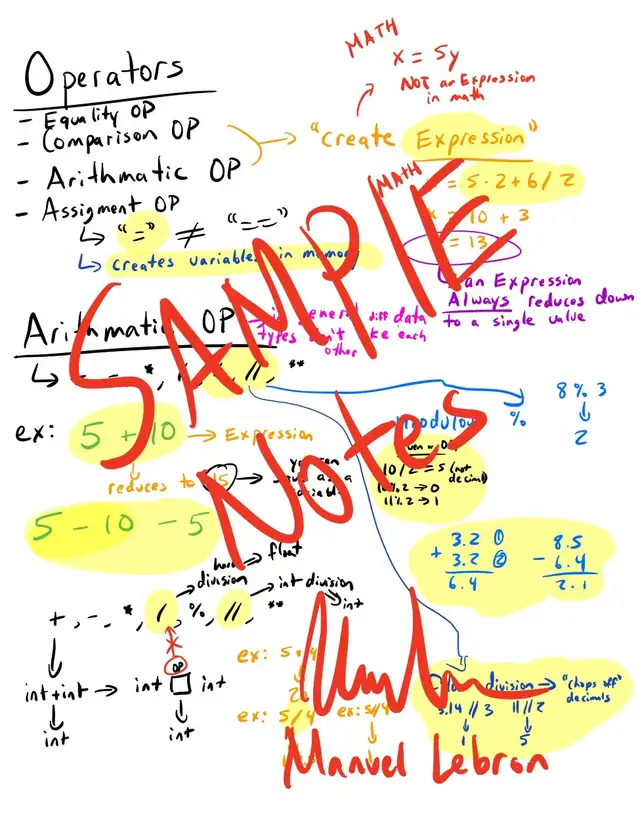 Operators
- Equality OP
- Comparison OP
- Arithmatic OP
- Assigment OP
↳ "=" ≠ "=="
↳ creates variables in memory
MATH
x = 5y
NOT an Expression
in math
"create Expression"
MATH
= 5·2+6/2
= 10 + 3
= 13
an Expression
Always reduces down
to a single value
SAMPLE
Notes
Arithmatic OP
general diff data
types don't like each
other
*, //, **
ex: 5 + 10 → Expression
reduces to 15
you can
5 - 10 - 5
%
8 % 3
2
10/2 = 5 (not
decimal)
10%2 → 0
11%2 → 1
3.2 ①
+ 3.2 ②
6.4
8.5
- 6.4
2.1
division → float
→ int division
int
+, -, *, /, %, //, **
OP
int+int → int □ int
int
int
ex: 5
ex: 5/4
ex: 5//4
division → "chops off"
decimals
3.14 // 3
11//2
1
5
Manuel Lebron